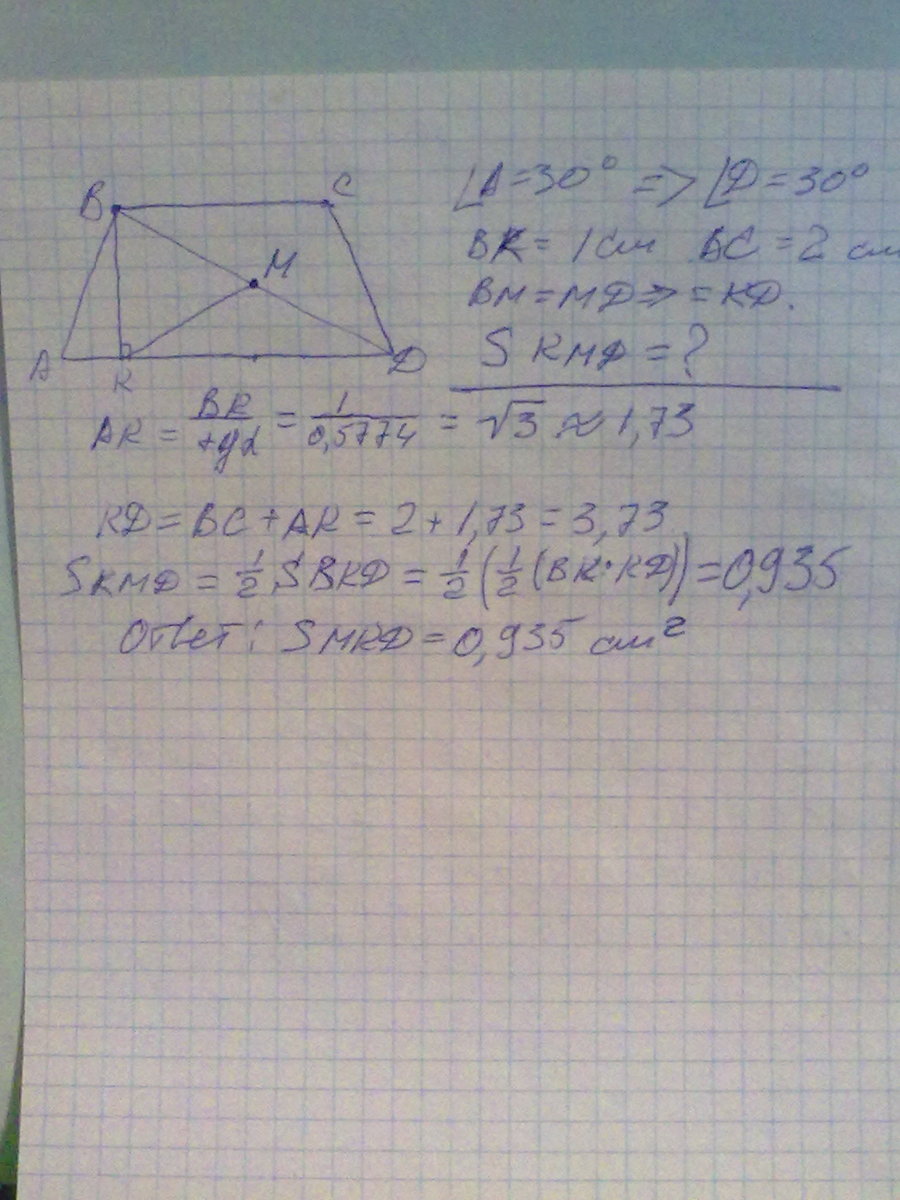 B C
M
A K D
∠A = 30° => ∠D = 30°
BK = 1 см BC = 2 см
BM = MD => = KD.
S KMD = ?
AK = BK/tgα = 1/0,5774 = √3 ≈ 1,73
KD = BC + AK = 2 + 1,73 = 3,73
SKMD = 1/2 SBKD = 1/2 (1/2 (BK · KD)) = 0,935
Ответ: SMKD = 0,935 см²